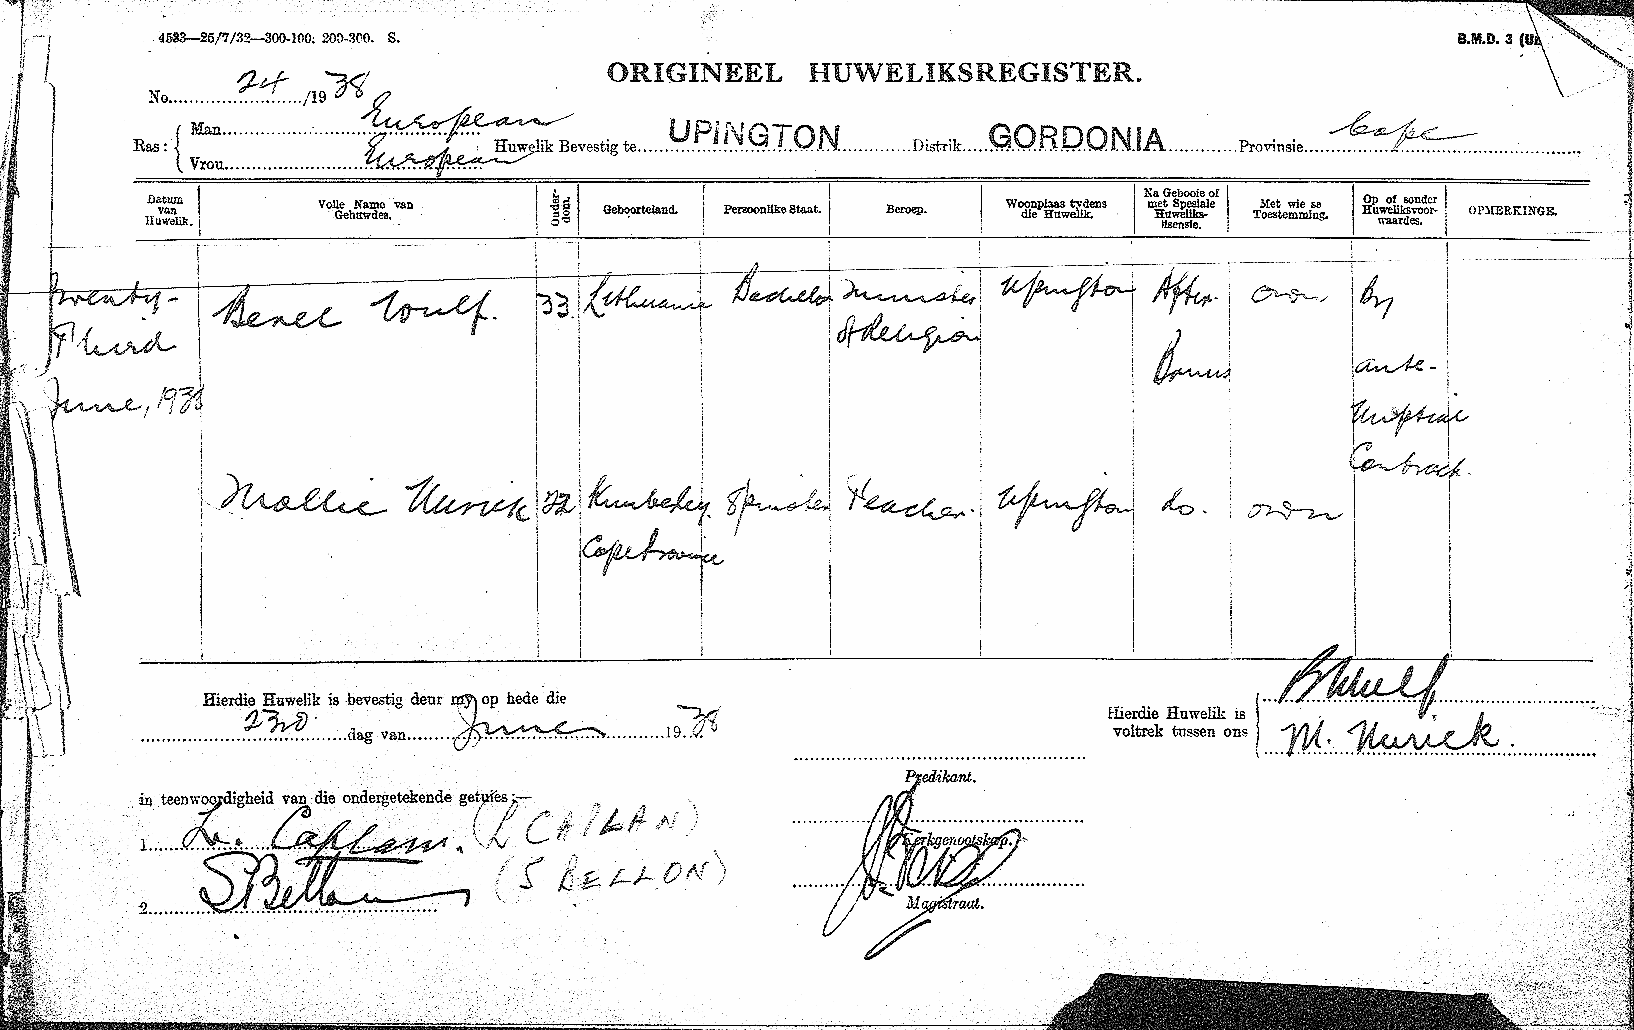 4523—25/7/32—300-100; 200-300. S.
B.M.D. 3
ORIGINEEL HUWELIKSREGISTER.
No. 24 /19 38
Ras: Man European
Vrou European
Huwelik Bevestig te UPINGTON Distrik GORDONIA Provinsie Cape
Datum van Huwelik.
Volle Name van Gehuwdes.
Ouderdom.
Geboorteland.
Persoonlike Staat.
Beroep.
Woonplaas tydens die Huwelik.
Na Gebooie of met Spesiale Huweliks-lisensie.
Met wie se Toestemming.
Op of sonder Huweliksvoorwaardes.
OPMERKINGE.
Twenty-Third June, 1938
Benel Wulf. 33 Lithuania Bachelor Minister of Religion Upington After Banns own by ante-Nuptial Contract.
Mollie Nurick 22 Kimberley Cape Province Spinster Teacher. Upington do. own
Hierdie Huwelik is bevestig deur my op hede die
23rd dag van June 19 38
Hierdie Huwelik is voltrek tussen ons
B Wulf
M. Nurick.
Predikant.
in teenwoordigheid van die ondergetekende getuies:—
1. L. Caplan. (L CAPLAN)
Kerkgenootskap.
2. S Bellon (S BELLON)
Magistraat.